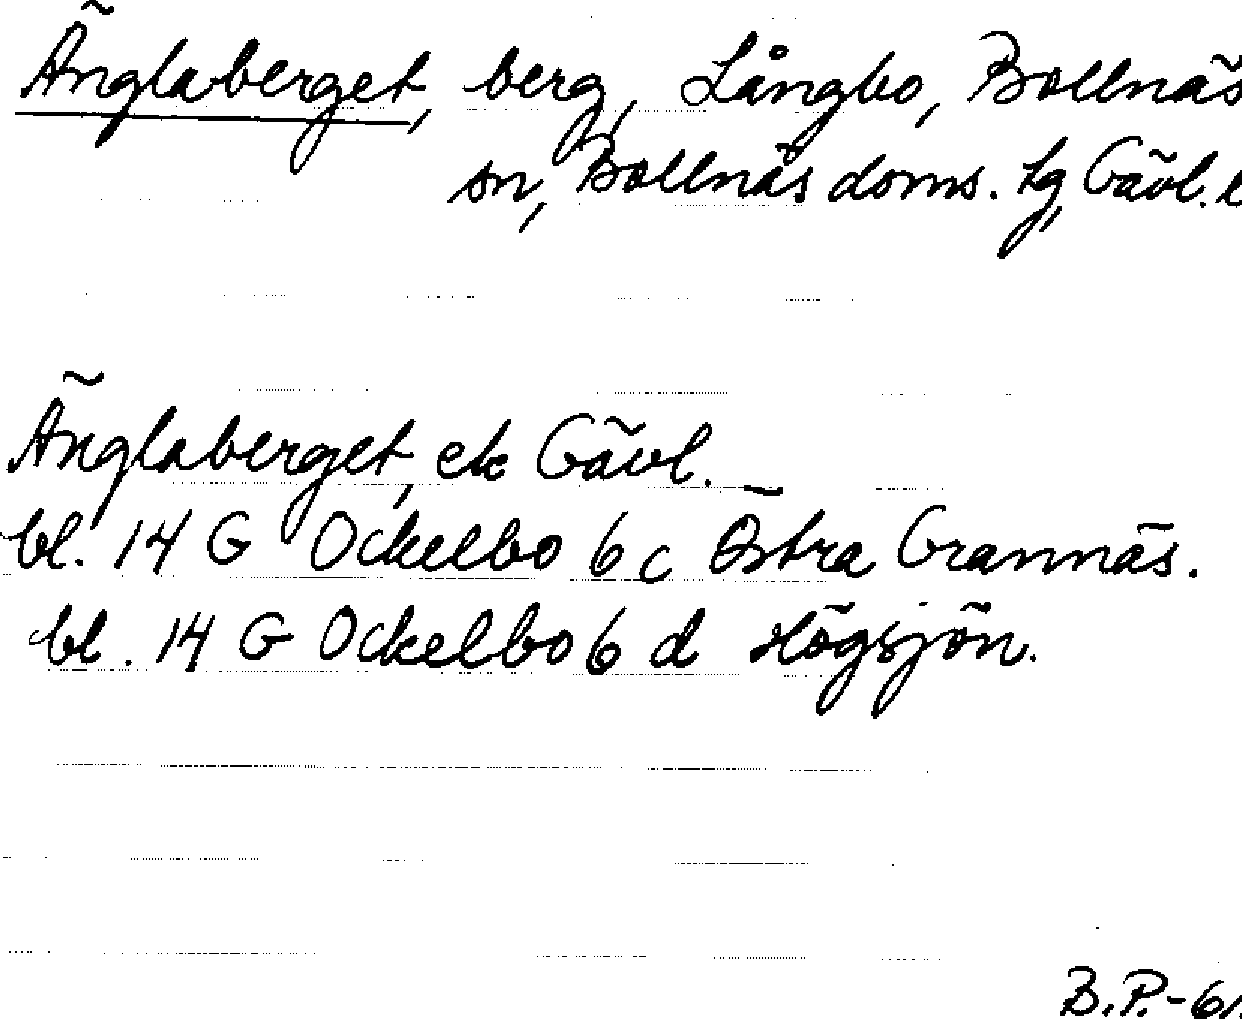 Änglaberget, berg, Långbo, Bollnäs
sn, Bollnäs doms. tg, Gävl. l
Änglaberget, ek Gävl.
bl. 14 G Ockelbo 6 c Östra Grannäs.
bl. 14 G Ockelbo 6 d Högsjön.
B.P.-61.